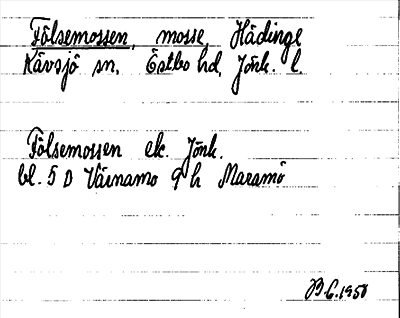 Fölsemossen, mosse, Hädinge
Kävsjö sn, Östbo hd, Jönk. l.
Fölsemossen ek. Jönk.
bl. 5 D Värnamo 9 h Maramö
B 6.1950